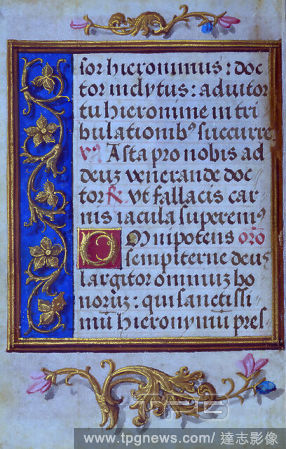 sor hieronimus: doc
tor inclytus: adiutor
tu hieronime in tri
bulationibꝰ succurre
℣ Asta pro nobis ad
deuz venerande doc
tor ℟ Vt fallacis car
nis iacula superemꝰ
Omnipotens oro
sempiterne deus
largitor omniuz bo
noruz: qui sanctissi
mū hieronymū pres
TPG
www.tpgnews.com/ 達志影像